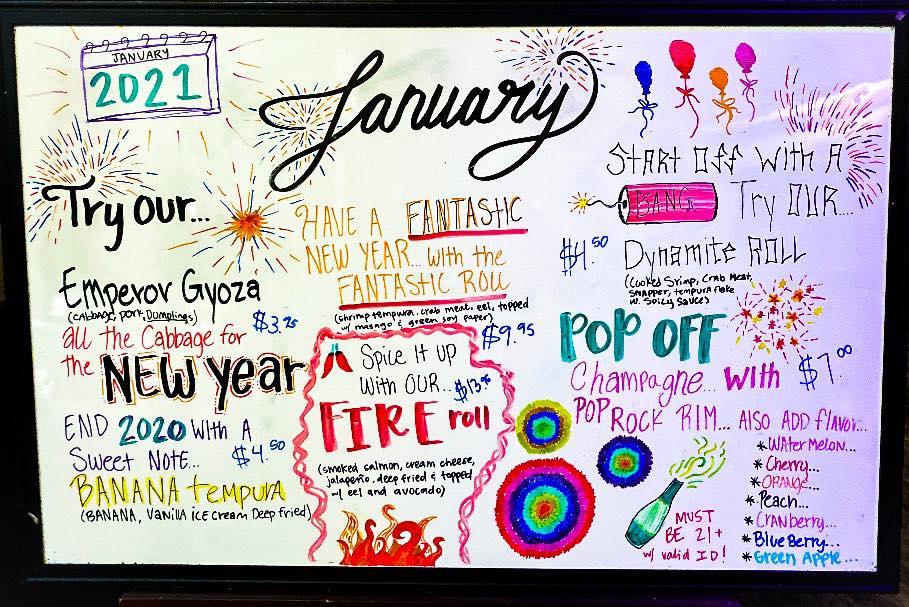 JANUARY
2021
January
Try our...
Emperor Gyoza
(CABBAGE, PORK, DUMPLINGS)
$3.25
all the Cabbage for
the NEW year
END 2020 WITH A
SWEET NOTE...
$4.50
BANANA tempura
(BANANA, VANILLA ICE CREAM DEEP FRIED)
HAVE A FANTASTIC
NEW YEAR... WITH the
FANTASTIC ROLL
(shrimp tempura, crab meat, eel, topped
w/ masago & green soy paper)
$9.95
SPICE IT UP
WITH OUR...
FIRE roll
(smoked salmon, cream cheese,
jalapeño, deep fried & topped
w/ eel and avocado)
START OFF WITH A
BANG TRY OUR...
$4.50
DYNAMITE ROLL
(COOKED SRIMP, CRAB MEAT,
SNAPPER, TEMPURA FLAKE
W. SPICY SAUCE)
POP OFF
Champagne... WITH
$7.00
POP ROCK RIM... ALSO ADD flavor...
* WATERMELON...
* Cherry...
* ORANGE...
* Peach...
* CRANberry...
* BlueBerry...
* Green Apple...
MUST
BE 21+
w/ valid ID!